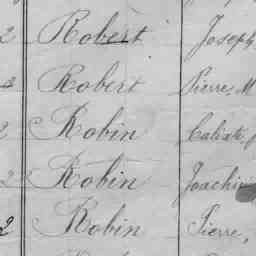 2 Robert Joseph
2 Robert Pierre, M
2 Robin
2 Robin Joachim
2 Robin Pierre,